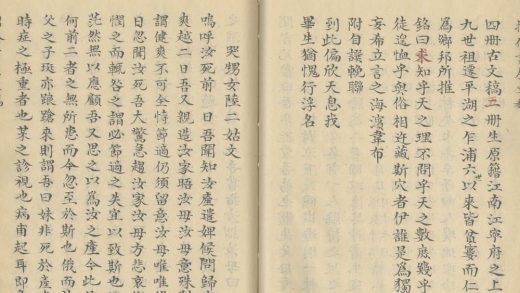 四册古文稿五册生原籍江南江寧府之上
九世祖遷平湖之乍浦六以來皆貧窶而仁
為鄉邦所推
銘曰未知乎天之理不問乎天之數庶幾乎
徒遑恤乎與俗相許藏斯穴者伊誰是為獨
妄希立言之海濱韋布
附自謨輓聯
到此偏欣天息我
畢生猶愧行浮名
哭甥女陸二姑文
嗚呼汝死前一日吾聞知汝產遣婢候問歸
爽越二日吾又親造汝家晤汝母汝母意殊
健爽不可全恃節適仍須留意汝母唯唯
日忽聞汝死吾大驚急趨汝家汝母方悲哀
憫之而輒咎之謂必節適之失宜以致斯也
茫然無以應顧吾又思之以為汝之產今此
何前二者之無所患而今忽至於斯也俄而
父之子珽亦踉蹌來則謂吾曰妹非死於產
時症之極重者也某之診視也病甫起耳即